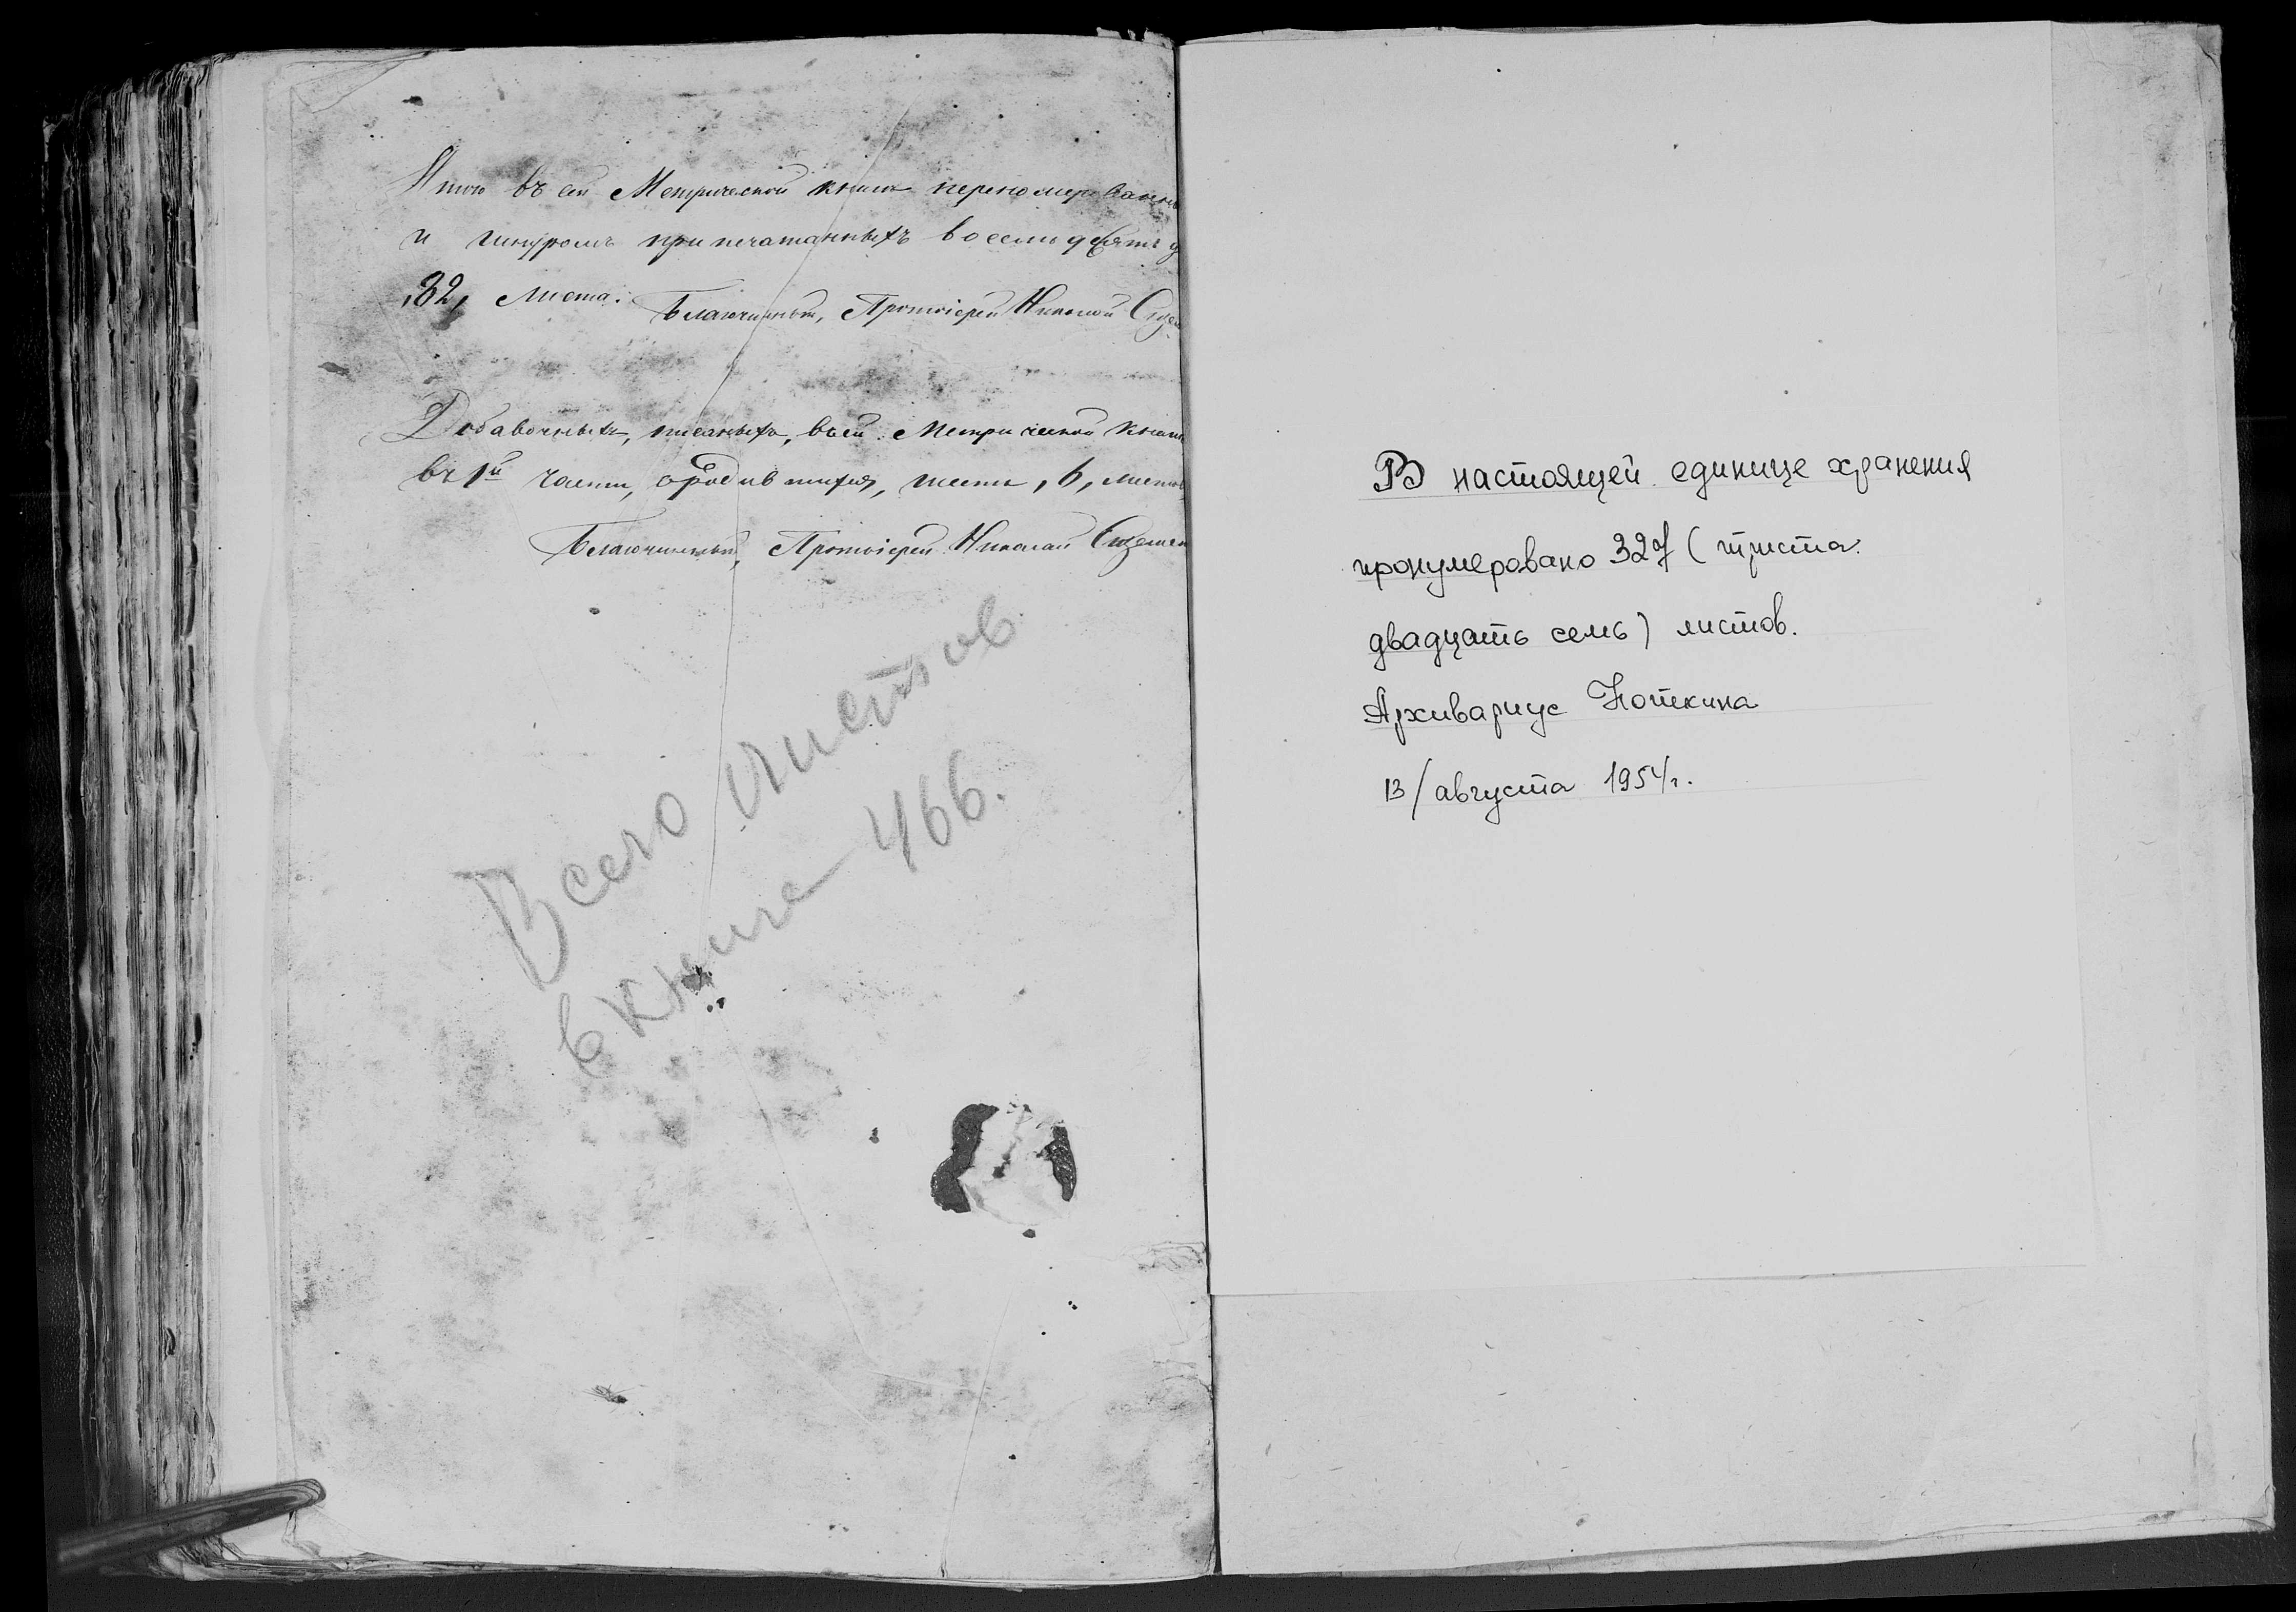 Итого въ сей Метрической книге перенумерованны
и шнуромъ припечатанныхъ восемьдесятъ
,82, листа.
Благочинный, Протоіерей Николай
Добавочныхъ, писаныхъ, въ сей Метрической книге
въ 1й части, о родившихся, шесть, 6, листов
Благочинный, Протоіерей Николай
Всего листов
в книге - 466.
В настоящей единице хранения
пронумеровано 327 (триста
двадцать семь) листов.
Архивариус Потекина
13/августа 1954г.